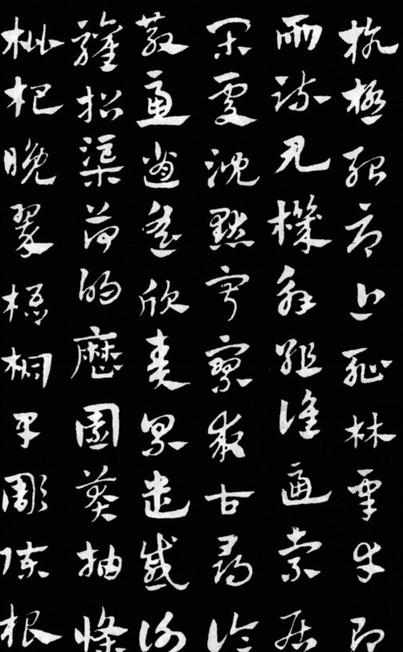 抗極殆辱近恥林皋幸即
兩疏見機解組誰逼索居
閑處沈默寂寥求古尋論
散慮逍遙欣奏累遣慼謝
讙招渠荷的歷園莽抽條
枇杷晚翠梧桐早彫陳根